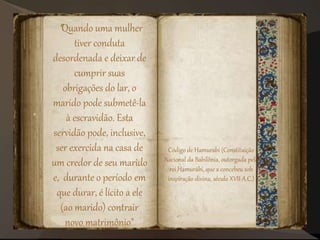 "Quando uma mulher
tiver conduta
desordenada e deixar de
cumprir suas
obrigações do lar, o
marido pode submetê-la
à escravidão. Esta
servidão pode, inclusive,
ser exercida na casa de
um credor de seu marido
e, durante o período em
que durar, é lícito a ele
(ao marido) contrair
novo matrimônio"
Código de Hamurabi (Constituição
Nacional da Babilônia, outorgada pelo
rei Hamurabi, que a concebeu sob
inspiração divina, século XVII A.C.)